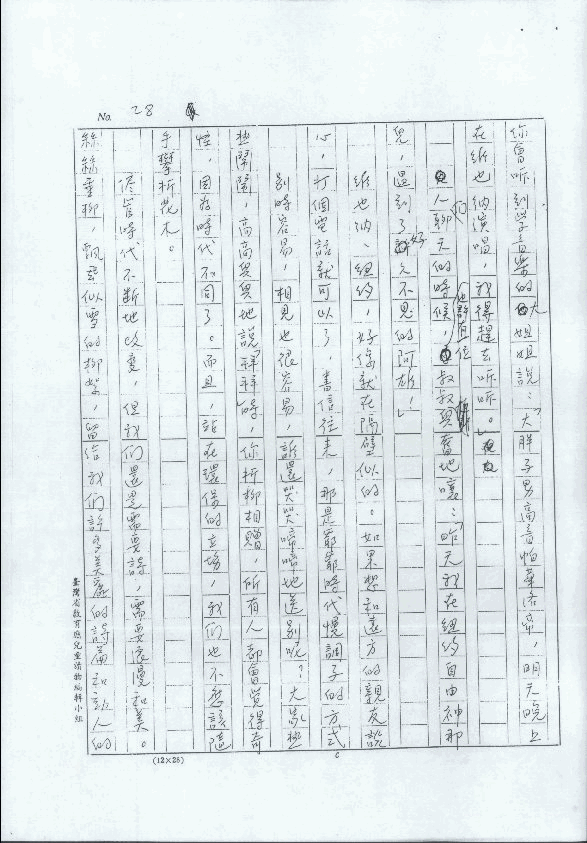 No. 28
你會听到学音樂的大姐姐說：「大胖子男高音帕華洛帝，明天晚上
在維也納演唱，我得趕去听听。」
人們聊天的時候，也許有位叔叔興奮地嚷：「昨天我在紐約自由神那
兒，遇到了好久不見的阿雄，」
維也納、紐約，好像就在隔壁似的。如果想和遠方的親友說
心，打個電話就可以了，書信往来，那是爺爺時代慢調子的方式
別時容易，相見也很容易，誰還哭哭啼啼地送別呢？大家熱
熱鬧鬧，高高興興地說「拜拜」時，你折柳相贈，所有人都會覺得奇
怪，因為時代不同了。而且，站在環保的立場，我们也不應該隨
手攀折花木。
儘管時代不斷地改变，但我们還是需要詩，需要浪漫和美。
絲絲垂柳，飄揚似雪的柳絮，留给我们許多美麗的詩篇和詩人的
臺灣省教育廳兒童讀物編輯小組
(12×25)